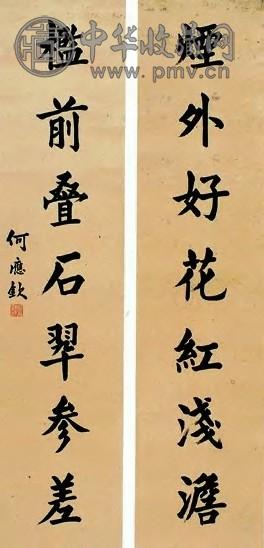 中华收藏网
www.pmv.cn
煙外好花紅淺澹
檻前叠石翠参差
何應欽